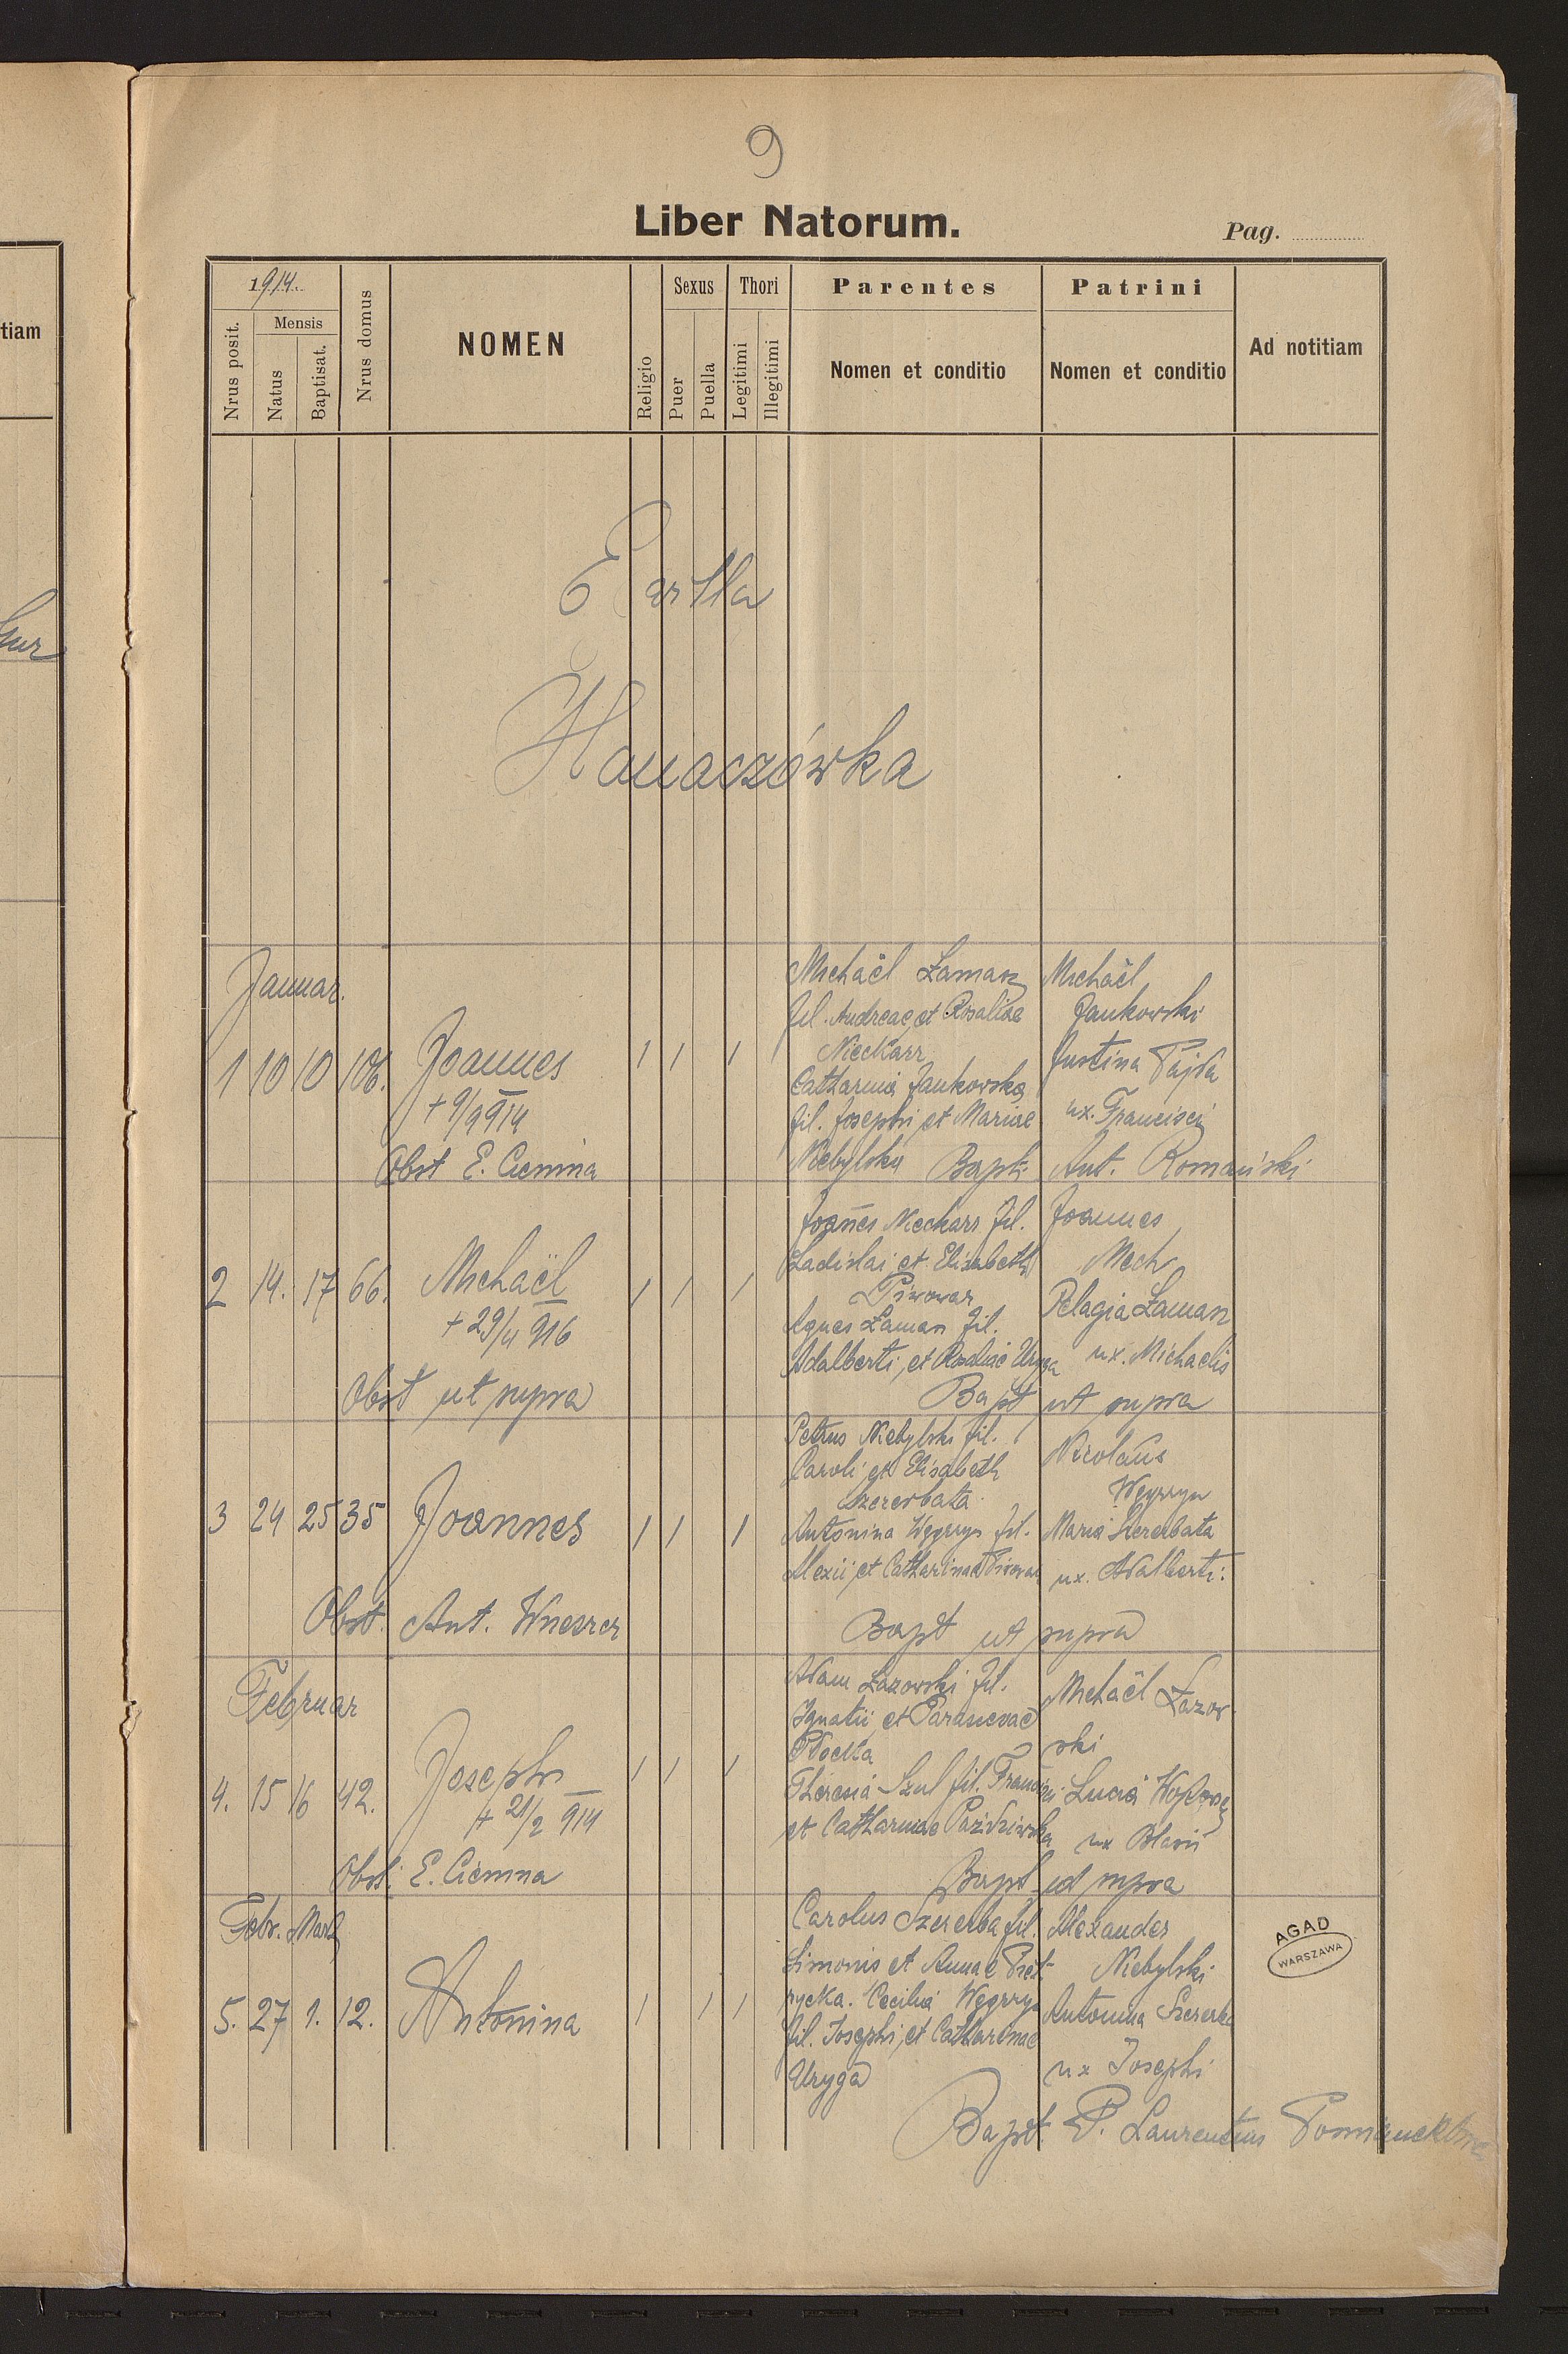 9
Liber Natorum.
Pag.
1914.
Nrus posit.
Mensis
Natus
Baptisat.
Nrus domus
NOMEN
Religio
Sexus
Puer
Puella
Thori
Legitimi
Illegitimi
Parentes
Nomen et conditio
Patrini
Nomen et conditio
Ad notitiam
tiam
E villa
Hanaczówka
Januar.
1 10 10 106. Joannes 1 1 1
+ 9/9 914
Obst E. Ciemna
Michaël Łamasz
fil. Andreae et Rosaliae
Nieckarz
Catharina Jankowska
fil. Josephi et Mariae
Niebylska
Michaël
Jankowski
Justina Pajda
ux. Francisci
Bapt. Ant. Romański
2 14. 17 66. Michaël 1 1 1
+ 29/11 916
Obst ut supra
Joañes Nieckarz fil.
Ladislai et Elisabeth
Piwowar
Agnes Łamasz fil.
Adalberti, et Rosaliae Uryga
Joannes
Mech
Pelagia Łamasz
ux. Michaelis
Bapt ut supra
3 24 25 35 Joannes 1 1 1
Obst. Ant.
Petrus Niebylski fil.
Caroli et Elisabeth
Szczerbata
Antonina Węgrzyn fil.
Alexii, et Catharinae Piwowar
Nicolaus
Węgrzyn
Maria Szczerbata
ux. Adalberti.
Bapt ut supra
Februar
4. 15 16 42. Joseph 1 1 1
+ 21/2 914
Obst. E. Ciemna
Adam Łazowski fil.
Ignatii et Parascevae
Theresia Szul fil. Francisci
et Catharinae
Michaël Łazow
ski
Lucia
ux
Bapt ut supra
Febr. Mart
5. 27 1. 12. Antonina 1 1 1
Carolus Szczerba fil.
Simonis et Annae Piet
rycka. Cecilia Węgrzyn
fil. Josephi, et Catharinae
Uryga
Alexander
Niebylski
Antonina Szczerba
ux Josephi
Bapt P. Laurentius
AGAD
WARSZAWA